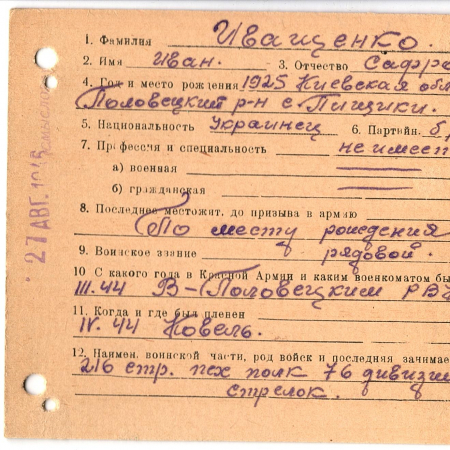 1. Фамилия Иващенко.
2. Имя Иван. 3. Отчество Сафро
4. Год и место рождения 1925 Киевская обл
Половецкий р-н с. Пищики.
5. Национальность Украинец 6. Партийн. б/
7. Профессия и специальность не имеет
а) военная
б) гражданская
8. Последнее местожит. до призыва в армию
По месту рождения
9. Воинское звание рядовой.
10 С какого года в Красной Армии и каким военкоматом бы
III.44 В-Половецким РВ
11. Когда и где был пленен
IV. 44 Ковель.
12. Наимен. воинской части, род войск и последняя занимае
216 стр. пех полк 76 дивизи
стрелок.
27 АВГ. 1946